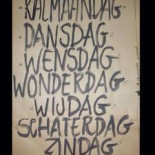 KALMAANDAG
DANSDAG
WENSDAG
WONDERDAG
WIJDAG
SCHATERDAG
ZINDAG